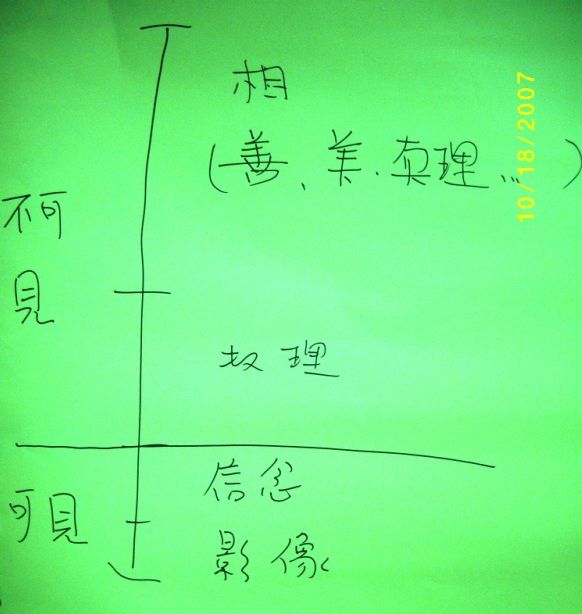 相
(善、美、真理...)
不可
見
理
信念
可見
影像
10/18/2007